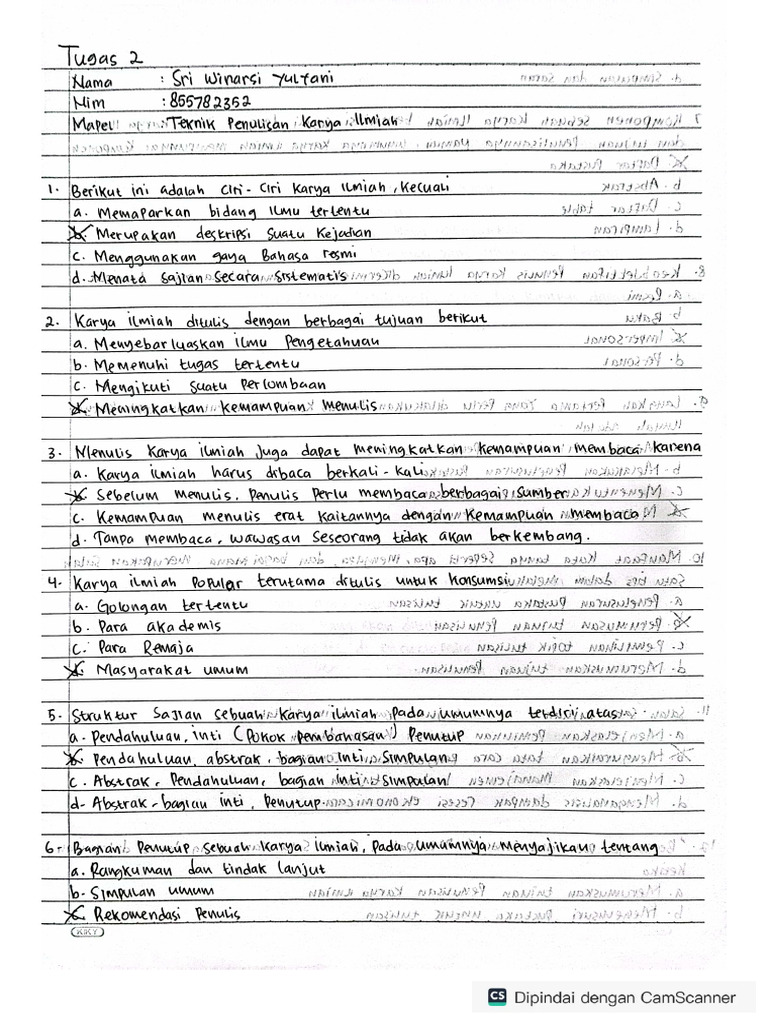 Tugas 2
Nama : Sri Winarsi Yultani
Nim : 855782352
Mapel : Teknik Penulisan Karya Ilmiah
1. Berikut ini adalah Ciri-Ciri Karya Ilmiah, Kecuali
a. Memaparkan bidang Ilmu tertentu
b. Merupakan deskripsi Suatu Kejadian
c. Menggunakan gaya Bahasa resmi
d. Menata Sajian Secara Sistematis
2. Karya ilmiah ditulis dengan berbagai tujuan berikut
a. Menyebarluaskan ilmu Pengetahuan
b. Memenuhi tugas tertentu
c. Mengikuti Suatu Perlombaan
Meningkatkan kemampuan Menulis
3. Menulis Karya ilmiah Juga dapat meningkatkan Kemampuan membaca karena
a. Karya ilmiah harus dibaca berkali-kali
Sebelum menulis, Penulis Perlu membaca berbagai Sumber
c. Kemampuan menulis erat kaitannya dengan Kemampuan membaca
d. Tanpa membaca, wawasan Seseorang tidak akan berkembang.
4. Karya ilmiah Popular terutama ditulis untuk Konsumsi
a. Golongan tertentu
b. Para akademis
c. Para Remaja
Masyarakat umum
5. Struktur Sajian sebuah Karya ilmiah Pada umumnya terdiri atas
a. Pendahuluan, inti (Pokok Pembahasan) Penutup
Pendahuluan, abstrak, bagian inti, Simpulan
c. Abstrak, Pendahuluan, bagian inti Simpulan
d. Abstrak, bagian inti, Penutup
6. Bagian Penutup sebuah Karya ilmiah, Pada umumnya Menyajikan tentang
a. Rangkuman dan tindak lanjut
b. Simpulan umum
Rekomendasi Penulis
KIKY
CS Dipindai dengan CamScanner